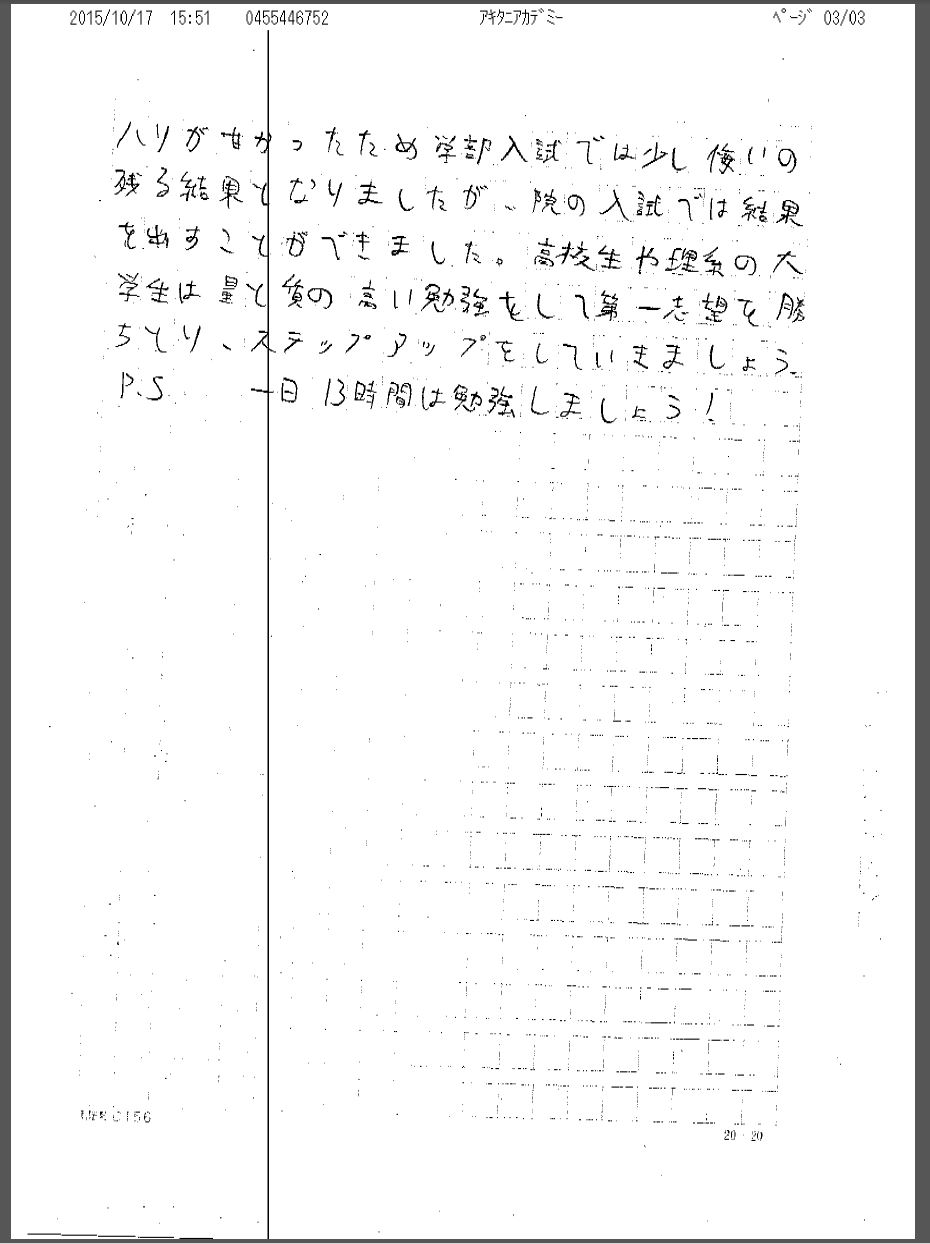 2015/10/17 15:51 0455446752 アキタニアカデミー ページ 03/03
ハリが甘かったため学部入試では少し悔いの
残る結果となりましたが、院の入試では結果
を出すことができました。高校生や理系の大
学生は量と質の高い勉強をして第一志望を勝
ちとり、ステップアップをしていきましょう。
P.S. 一日13時間は勉強しましょう!
20 20